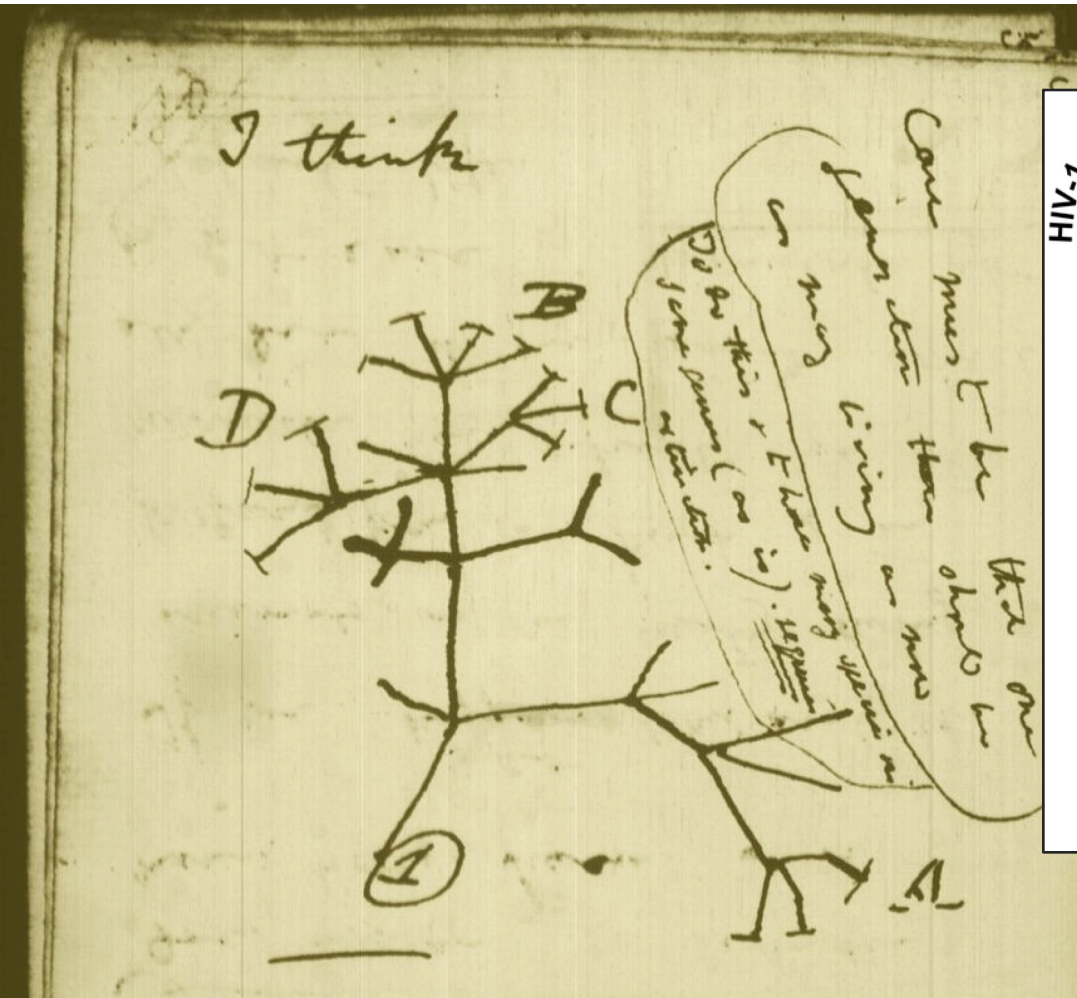 I think
B
D
C
A
1
Case must be that one
generation then should be
as many living as now
To do this & to have many species in
same genus (as is). requires
extinction.
HIV-1